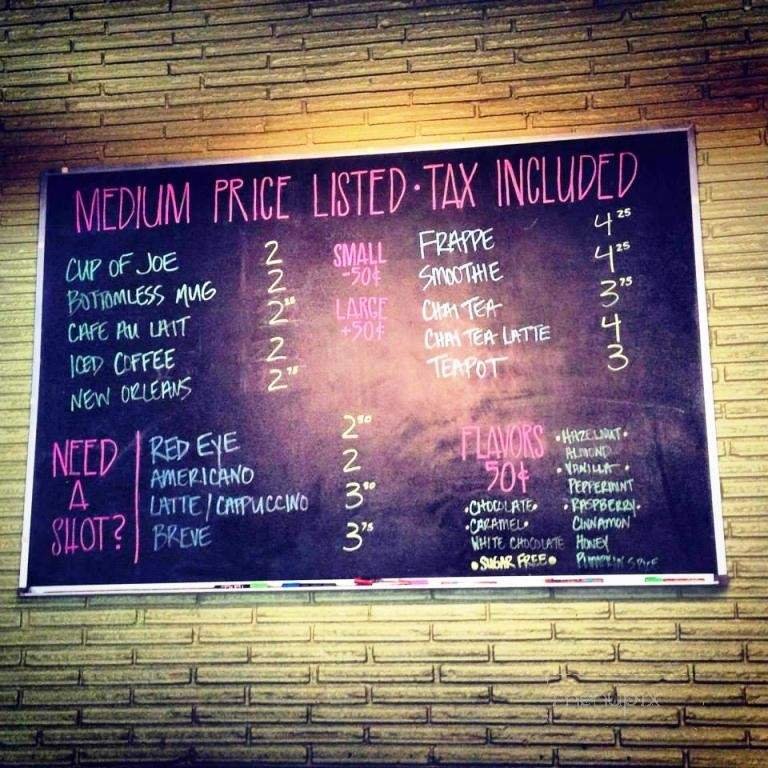 MEDIUM PRICE LISTED · TAX INCLUDED
CUP OF JOE 2
BOTTOMLESS MUG 2
CAFE AU LAIT 2
ICED COFFEE 2
NEW ORLEANS 2
SMALL
-50¢
LARGE
+50¢
FRAPPE 4 25
SMOOTHIE 4 25
CHAI TEA 3 75
CHAI TEA LATTE 4
TEAPOT 3
NEED
A
SHOT?
RED EYE 2 50
AMERICANO 2
LATTE / CAPPUCCINO 3 50
BREVE 3 75
FLAVORS
50¢
• CHOCOLATE •
• CARAMEL •
WHITE CHOCOLATE
• SUGAR FREE •
• HAZELNUT •
ALMOND
• VANILLA •
PEPPERMINT
• RASPBERRY •
CINNAMON
HONEY
PUMPKIN SPICE